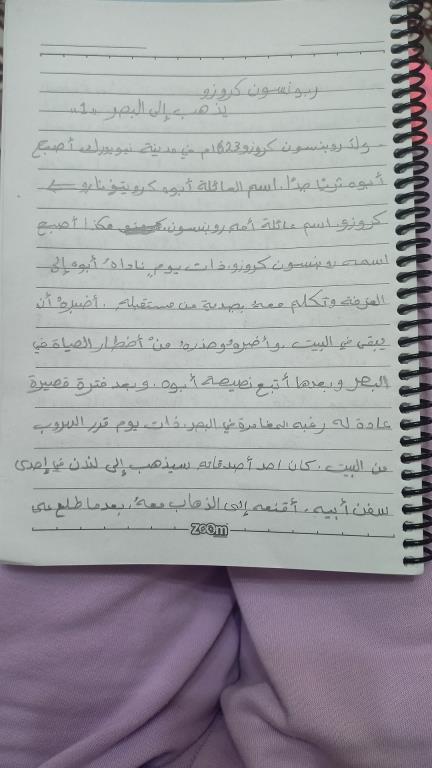 ربونسون كروزو
يذهب إلى البحر «1»
ولد روبنسون كروزو 1623م في مدينة نيويورك أصبح
أبوه ثريًا جدًا. اسم العائلة أبوه
كروزو. اسم عائلة أمه روبنسون هكذا أصبح
اسمه روبنسون كروزو. ذات يوم ناداهُ أبوه إلى
الغرفة وتكلم معه بجدية من مستقبله. أخبرهُ أن
يبقى في البيت. وأخبرهُ وحذرهُ منْ أخطار الحياة في
البحر وبعدها أتبع نصيحة أبوه. وبعد فترة قصيرة
عادة له رغبه المغامرة في البحر. ذات يوم قرر الهروب
من البيت. كان احد أصدقائه سيذهب إلى لندن في إحدى
سفن أبيه. أقنعه إلى الذهاب معهُ. بعدما طلع على
zoom